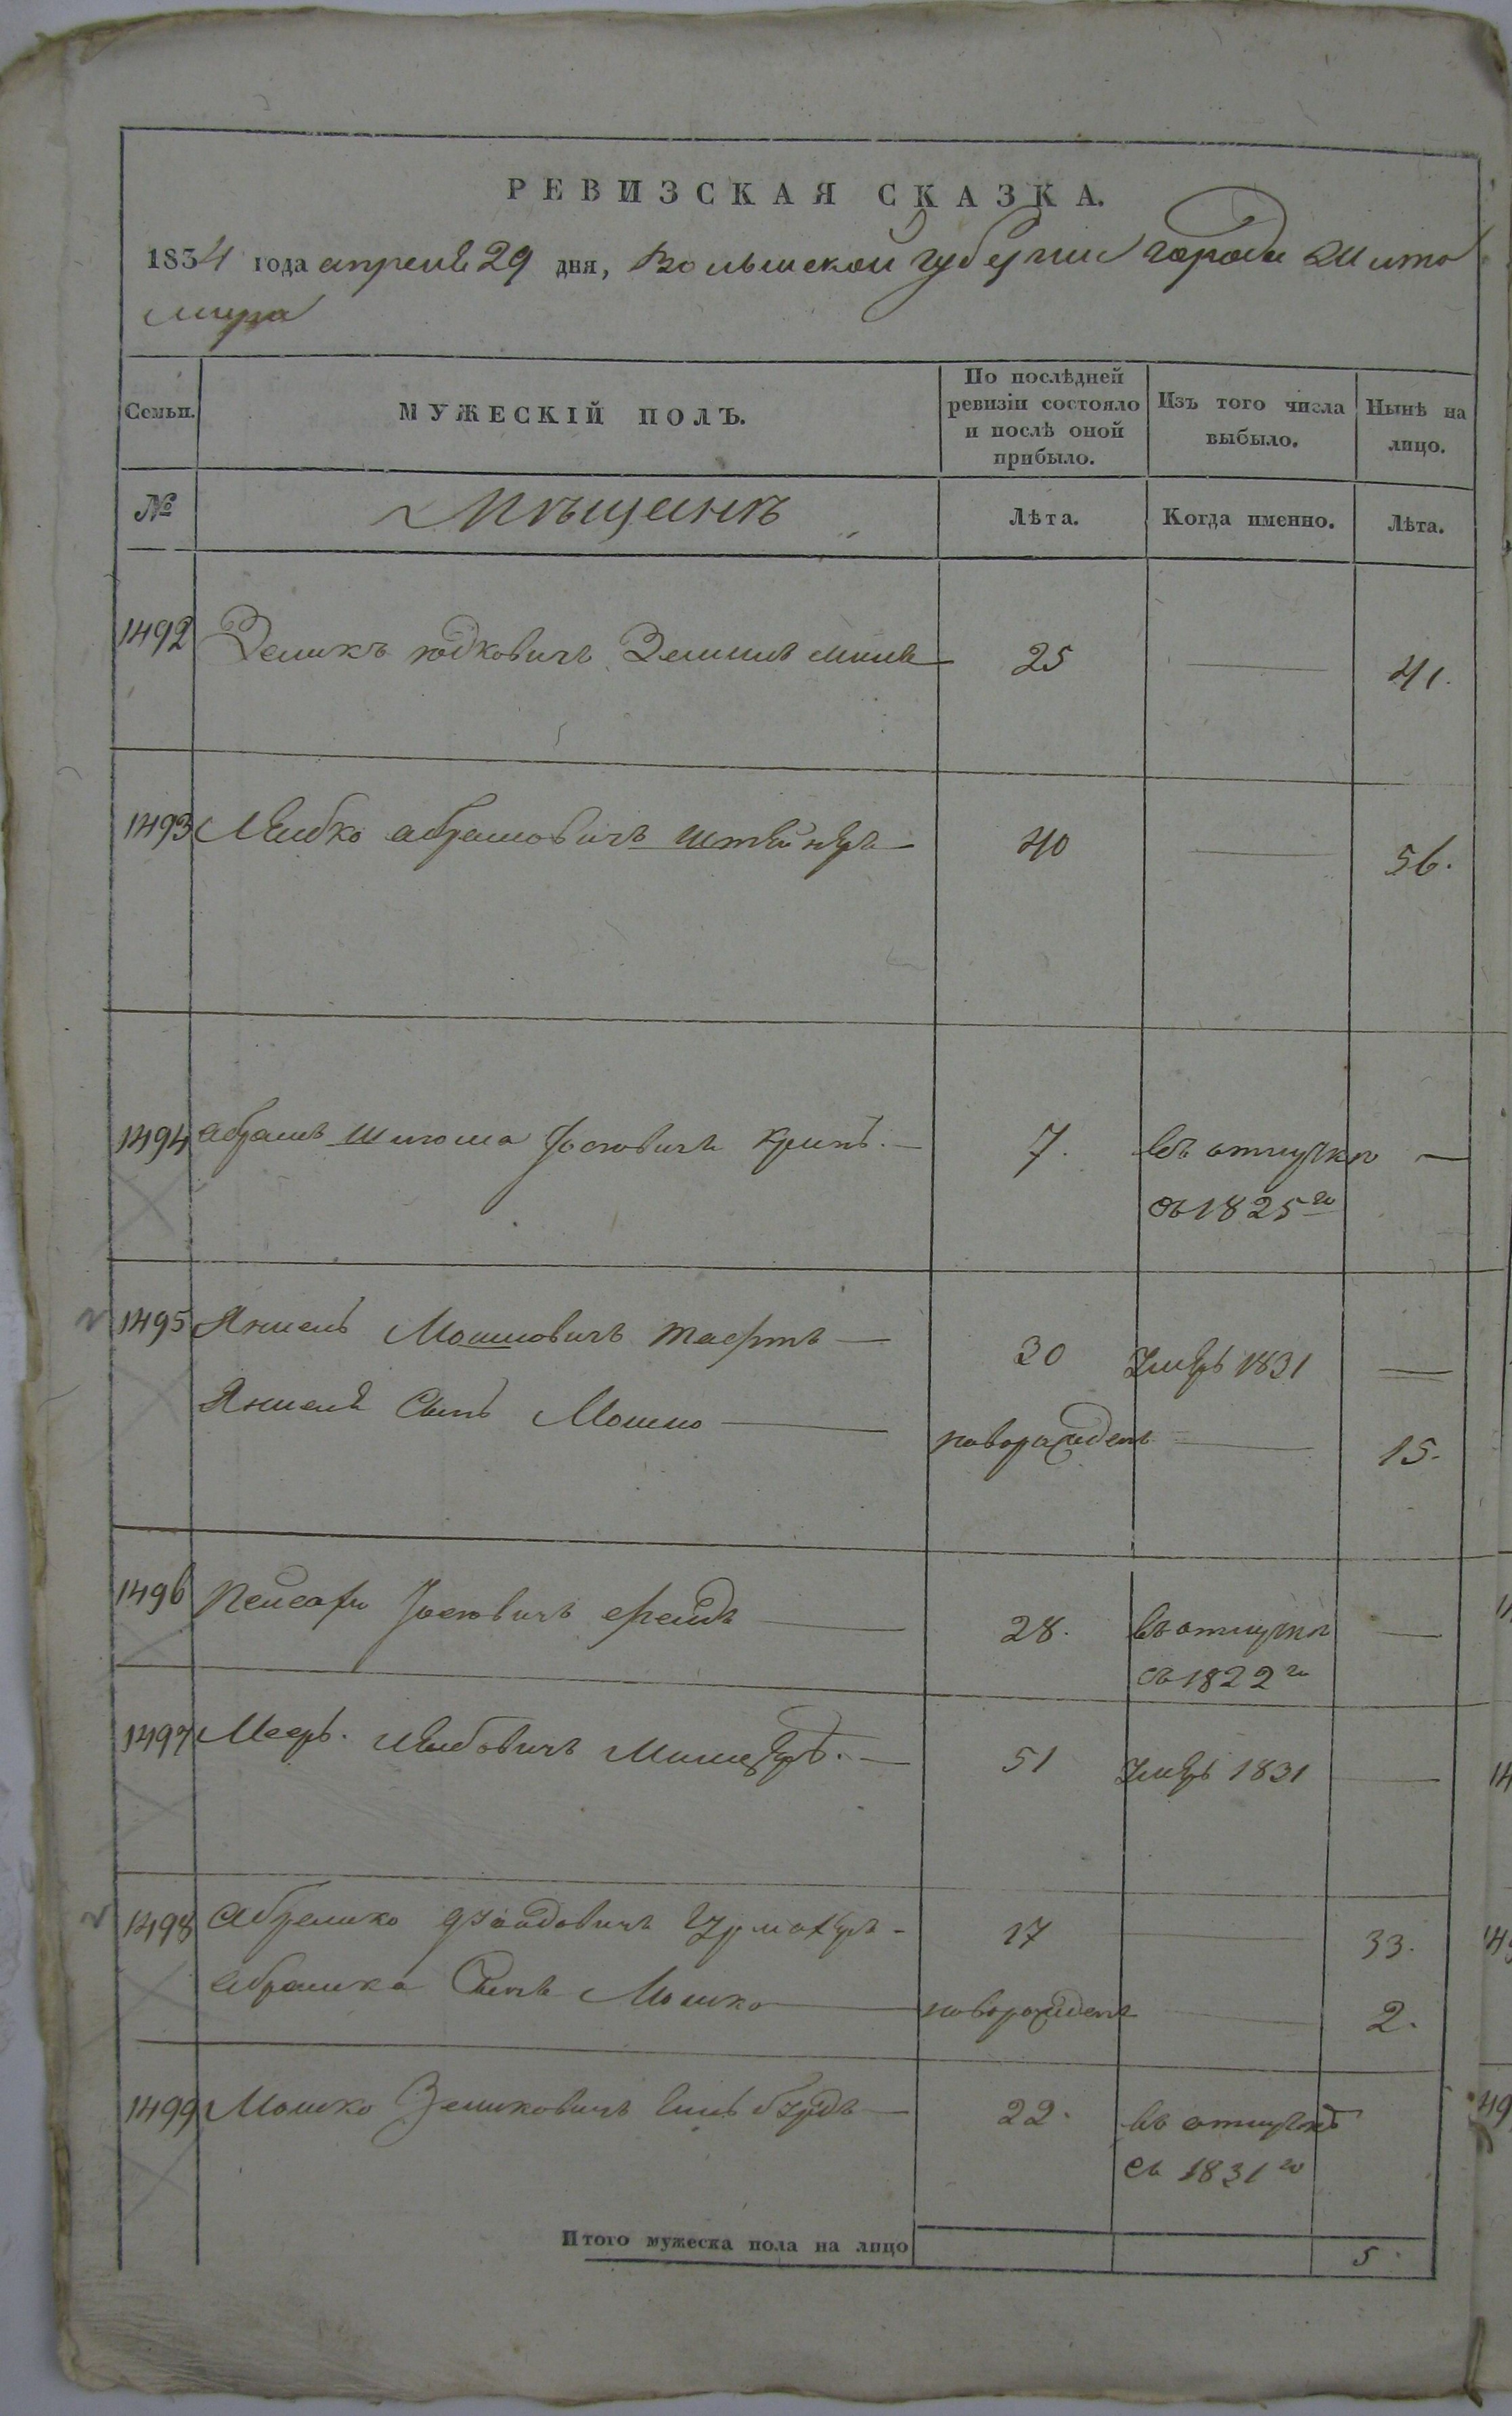 РЕВИЗСКАЯ СКАЗКА.
1834 года апреля 29 дня, Волынской губернии города Жито
мира
Семьи. МУЖЕСКІЙ ПОЛЪ. По послѣдней ревизіи состояло и послѣ оной прибыло. Изъ того числа выбыло. Нынѣ на лицо.
№ Мѣщанъ Лѣта. Когда именно. Лѣта.
1492 Зеликъ Юдковичъ 25 41.
1493 Лейбко Абрамовичъ Штейнеръ 40 56.
1494 Абрамъ Шлиома Іосіовичъ 7. въ отлучкѣ
съ 1825го
1495 Янкель Мошковичъ 30 Умеръ 1831
Янкеля Сынъ Мошко новорожденъ 15.
1496 Пейсахъ Іосіовичъ 28. въ отлучкѣ
съ 1822го
1497 Мееръ Лейбовичъ 51 Умеръ 1831
1498 Абрамко 17 33.
Абрамка Сынъ Мошко новорожденъ 2.
1499 Мошко Зеликовичъ 22. въ отлучкѣ
съ 1831го
Итого мужеска пола на лицо 5